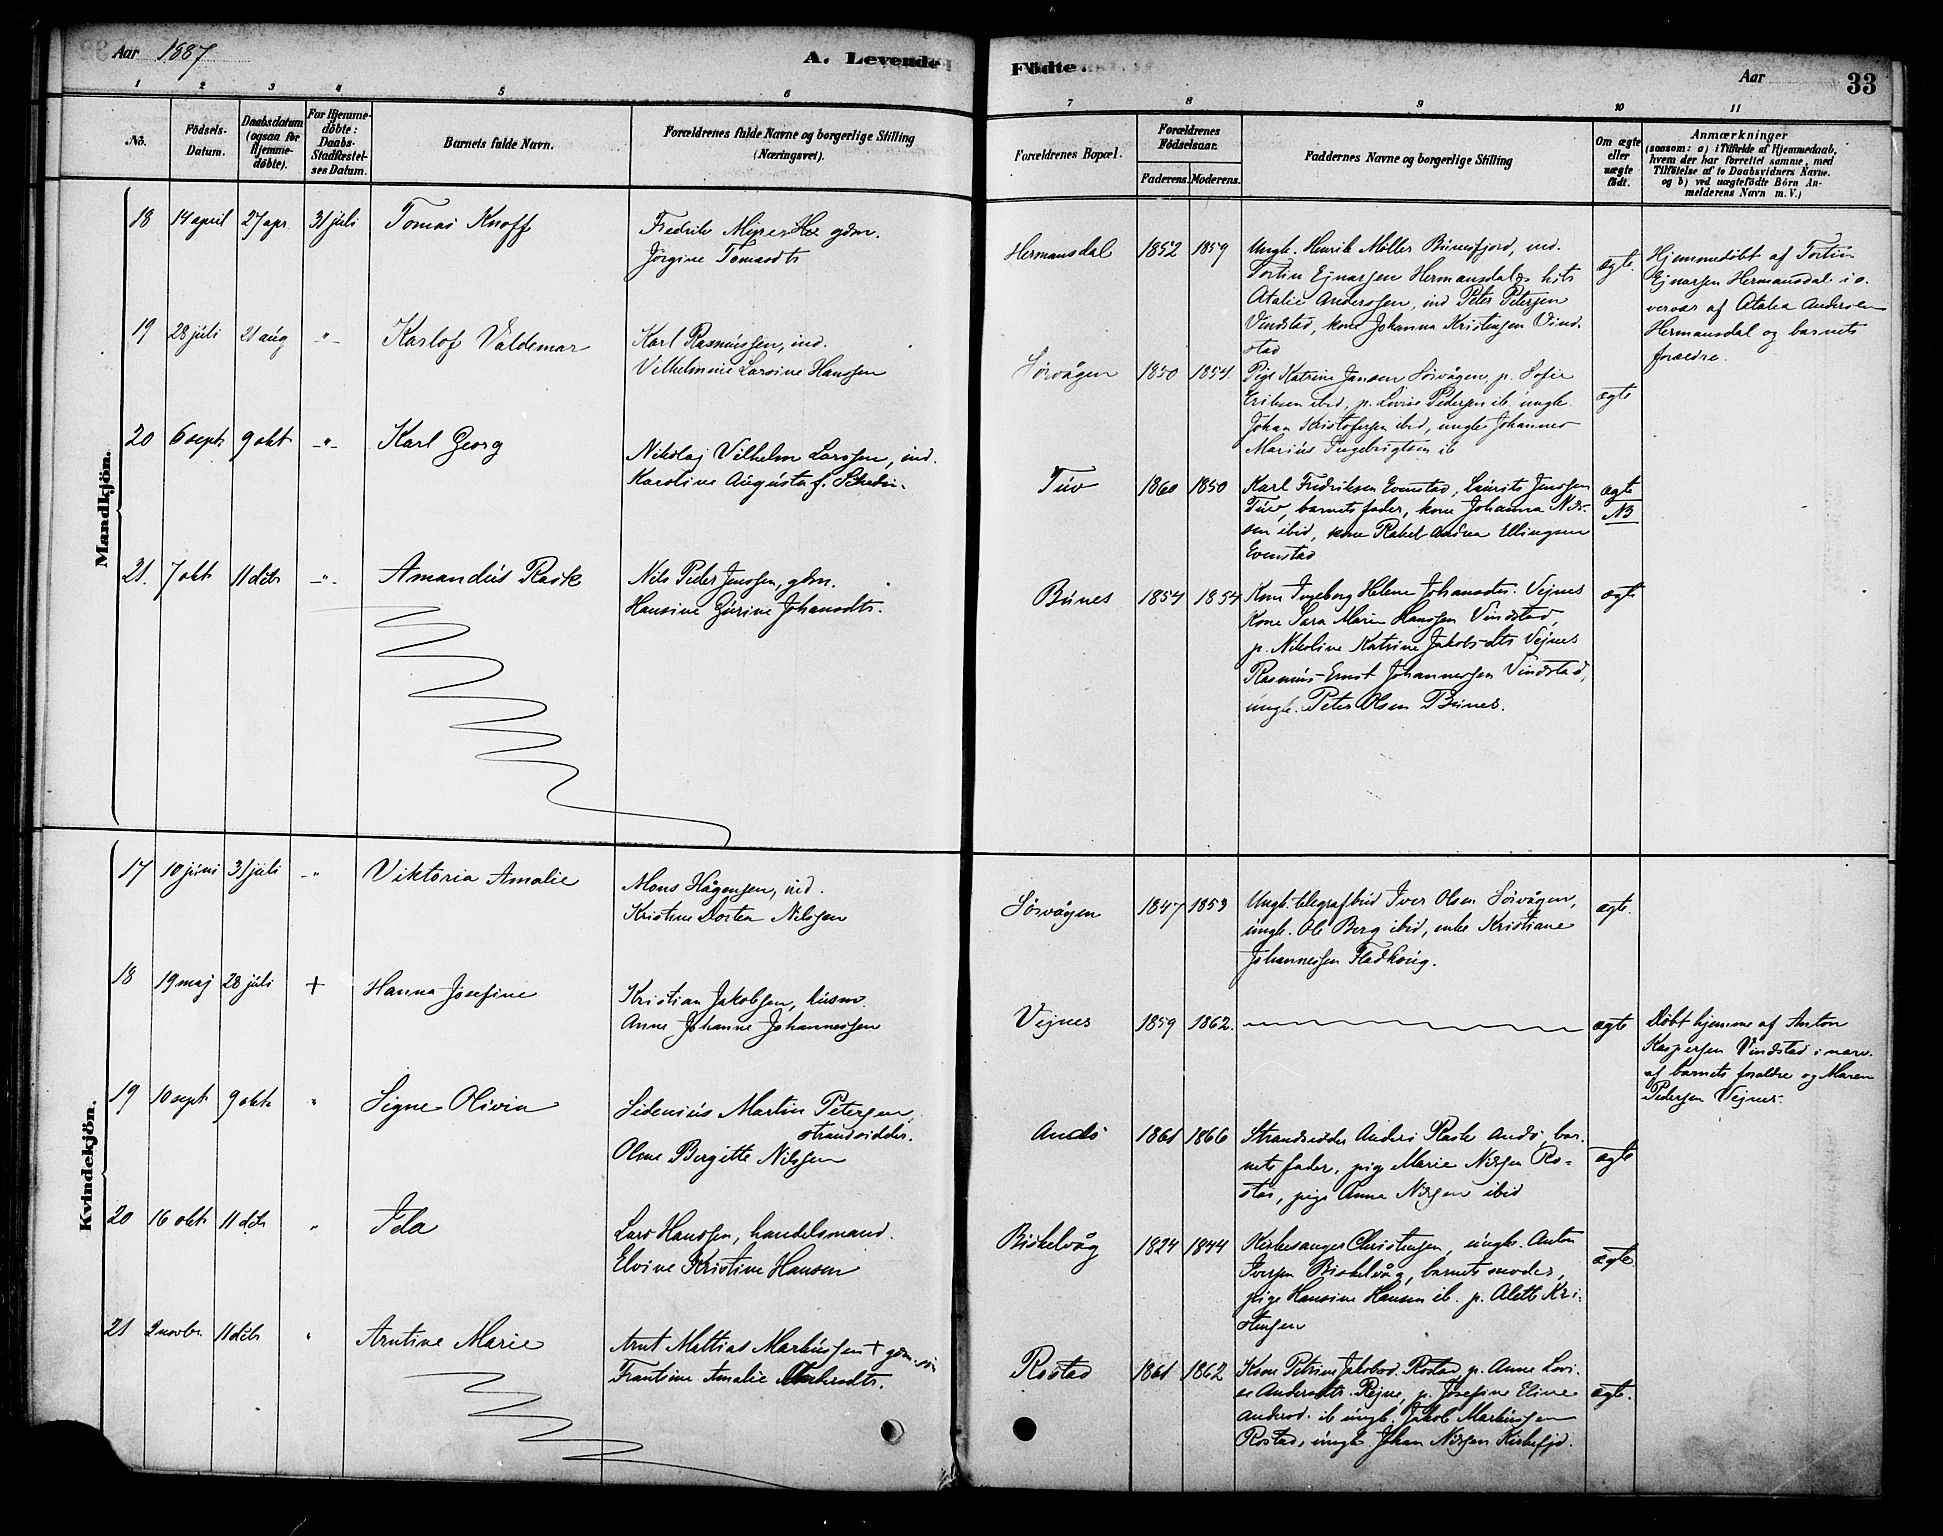 Aar 1887
A. Levende
Födte.
Aar
33
1 2 3 4 5 6 7 8 9 10 11
No.
Födsels-
Datum.
Daabsdatum
(ogsaa for
Hjemme-
döbte).
For Hjemme-
döbte:
Daabs-
Stadfæstel-
ses Datum.
Barnets fulde Navn.
Forældrenes fulde Navne og borgerlige Stilling
(Næringsvei).
Forældrenes Bopæl.
Forældrenes
Födselsaar.
Faderens. Moderens.
Faddernes Navne og borgerlige Stilling
Om ægte
eller
uægte
födt.
Anmærkninger
(saasom: a) i Tilfælde af Hjemmedaab,
hvem der har forrettet samme, med
Tilföielse af to Daabsvidners Navne.
og b) ved uægtefödte Börn An-
melderens Navn m. V.)
Mandkjön.
18 14 april 27 apr. 31 juli Tomas Knoff
Fredrik gdm.
Jørgine Tomasdtr
Hermansdal 1852 1859
Ungk. Henrik Møller Bunesfjord, ind.
Tortin Ejnarsen Hermansdal, hits
Atalie Anderssen, ind Peter Petersen
Vindstad, kone Johanna Kristensen Vind-
stad
ægte.
Hjemmedøbt af Tortin
Ejnarsen Hermansdal i o-
vervær af Atalea Andersen
Hermansdal og barnets
forældre.
19 28 juli 21 aug -"- Karlof Valdemar
Karl Rasmussen, ind.
Vilhelmine Larsine Hanssen
Sørvågen 1850 1854.
Pige Katrine Jansen Sørvågen, p. Sofie
Eriksen ibid, p. Lovise Pedersen ib. ungk.
Johan Kristofersen ibid, ungk. Johannes
Marius Ingebrigtsen ib
ægte
20 6 sept 9 okt -"- Karl Georg
Nikolaj Vilhelm Larssen, ind.
Karoline Augusta f.
Tuv 1860 1850
Karl Fredriksen Evenstad, Laurits Jenssen
Tuv, barnets fader, kone Johanna Nils-
sen ibid, kone Rakel Andrea Ellingsen
Evenstad
ægte
NB
21. 7 okt 11 dcb -"- Amandus Rask
Nils Peder Jenssen, gdm.
Hansine Gurine Johansdtr.
Bunes 1854 1854
Kone Ingeborg Helene Johansdtr. Vejnes
Kone Sara Marie Hanssen Vindstad,
p. Nikoline Katrine Jakobsdtr Vejnes
Rasmus Ernst Johannessen Vindstad,
ungk. Peter Olsen Bunes.
ægte
Kvindekjön.
17 10 juni 31 juli -"- Viktoria Amalie
Mons Hågensen, ind.
Kristine Dortea Nilssen
Sørvågen 1847 1853
Ungk. telegrafbud Iver Olsen Sørvågen,
ungk. Ole Berg ibid, enke Kristiane
Johannessen
ægte.
18 19 maj 28 juli + Hanna Josefine
Kristian Jakobsen, husm.
Anne Johanne Johannessen
Vejnes 1859 1862.
ægte
Døbt hjemme af Anton
Kaspersen Vindstad i nærv.
af barnets forældre og Maren
Pedersen Vejnes.
19 10 sept 9 okt " Signe Olivia
Sidenius Martin Petersen,
strandsidder.
Oline Bergitte Nilssen
Andø 1861 1866
Strandsidder Anders Rask Andø, bar-
nets fader, pige Marie Nilssen Ro-
stad, pige Anna Nilssen ibid
ægte
20 16 okt 11 dcb " Ida
Lars Hanssen, handelsmand.
Elvine Kristine Hansen
Biskelvåg 1824 1844
Kirkesanger Christensen, ungk. Anton
Iversen Biskelvåg, barnets moder,
pige Hansine Hansen ib. p. Aleth Kri-
stensen
ægte
21 2 novbr. 11 dcb " Arntine Marie
Arnt Mattias Markussen + gdm. søn
Frantine Amalie
Rostad 1861 1862
Kone Petrine Jakobsd. Rostad, p. Anne Lovi-
se Andersdtr. Rejne, p. Josefine Eline
Andersd. ib ungk. Jakob Markussen
Rostad, ungk. Johan Nilssen Kirkefjd.
ægte.